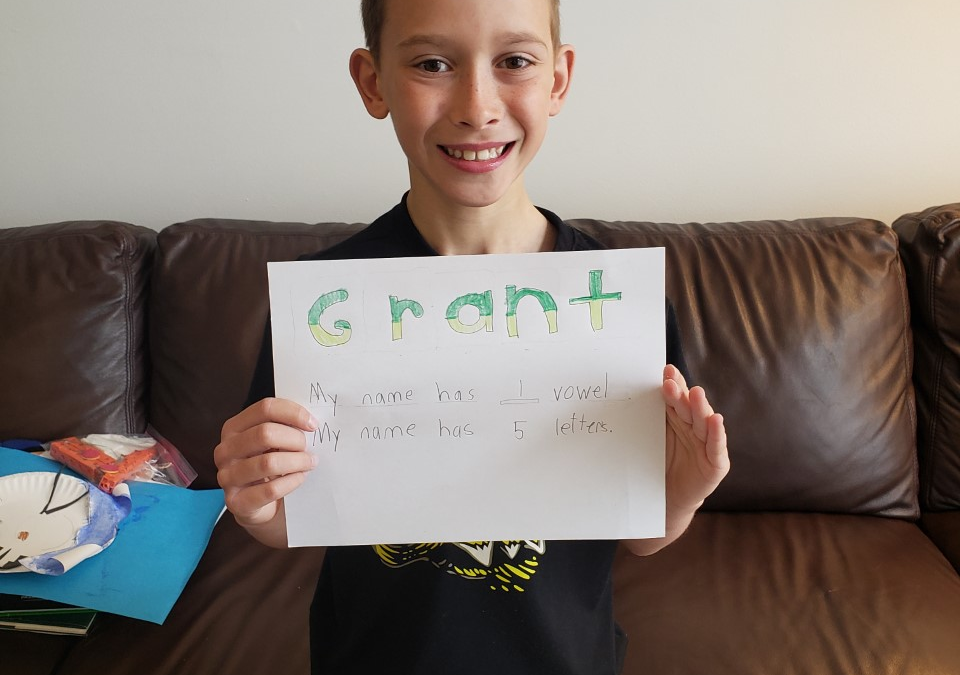 Grant
My name has 1 vowel.
My name has 5 letters.